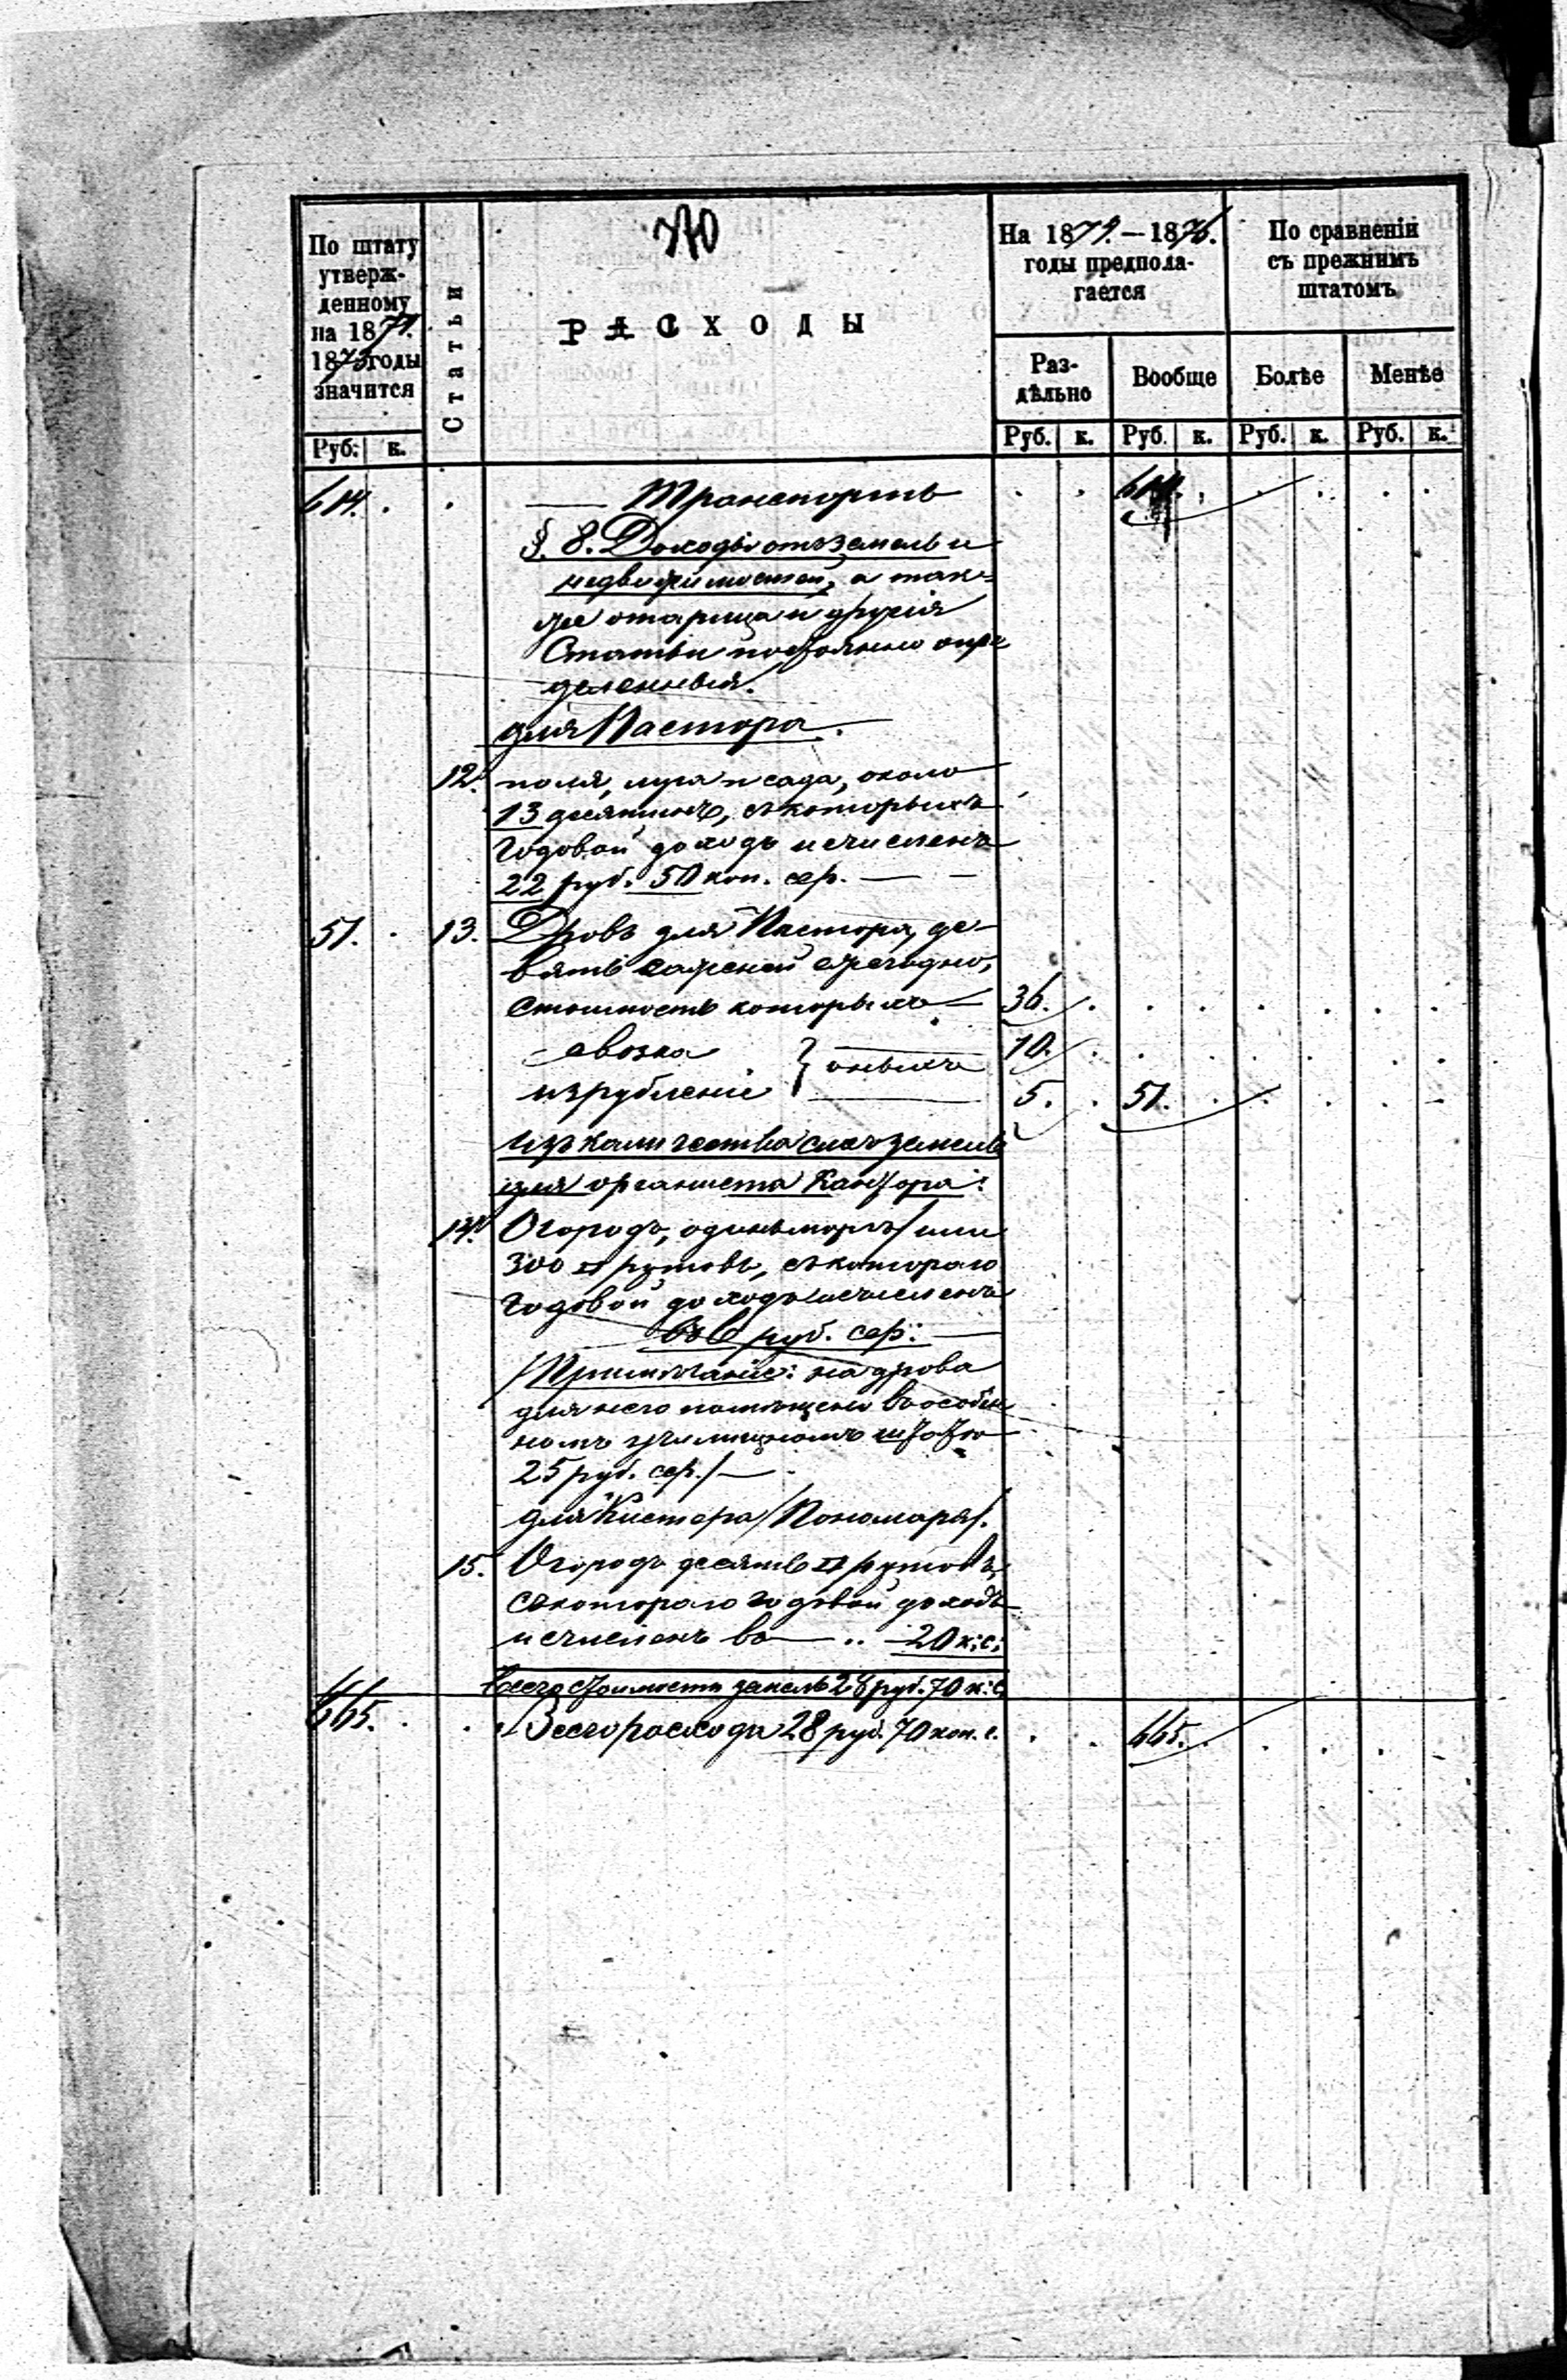 770
По штату
утверж-
денному
на 1871.
1873 годы
значится
Руб. к.
Статьи
РАСХОДЫ
На 1874.—1876.
годы предпола-
гается
По сравненіи
съ прежнимъ
штатомъ
Раз-
дѣльно
Вообще
Болѣе
Менѣе
Руб. к. Руб. к. Руб. к. Руб. к.
614. Транспортъ 614.
§. 8. Доходы отъ земель и
недвижимостей, а так-
же и другія
Статьи постоянно опре
деленныя.
для Пастора.
12. поля, луга и сада, около
13 десятинъ, съ которыхъ
годовой доходъ исчисленъ
22 руб. 50 коп. сер.
51. 13. Дровъ для Пастора, де-
вять саженей ежегодно,
стоимость которыхъ 36.
свозка 10.
} оныхъ
и зрубленіе 5. 51.
Изъ количества сихъ земель
для органиста Кантора:
14. Огородъ, одинъ моргъ/или
300 □ рутовъ, съ котораго
годовой доходъ исчисленъ
въ 6 руб. сер:
/Примѣчаніе: на дрова
для него помѣщено въ особен
номъ училищномъ штатѣ
25 руб. сер./
для Кистера /Пономаря/.
15. Огородъ десять □ рутовъ,
съ котораго годовой доходъ
исчисленъ въ .. 20 к: с:
Всего стоимости земель 28 руб. 70 к: с.
665. Всего расхода 28 руб. 70 коп. с. 665.